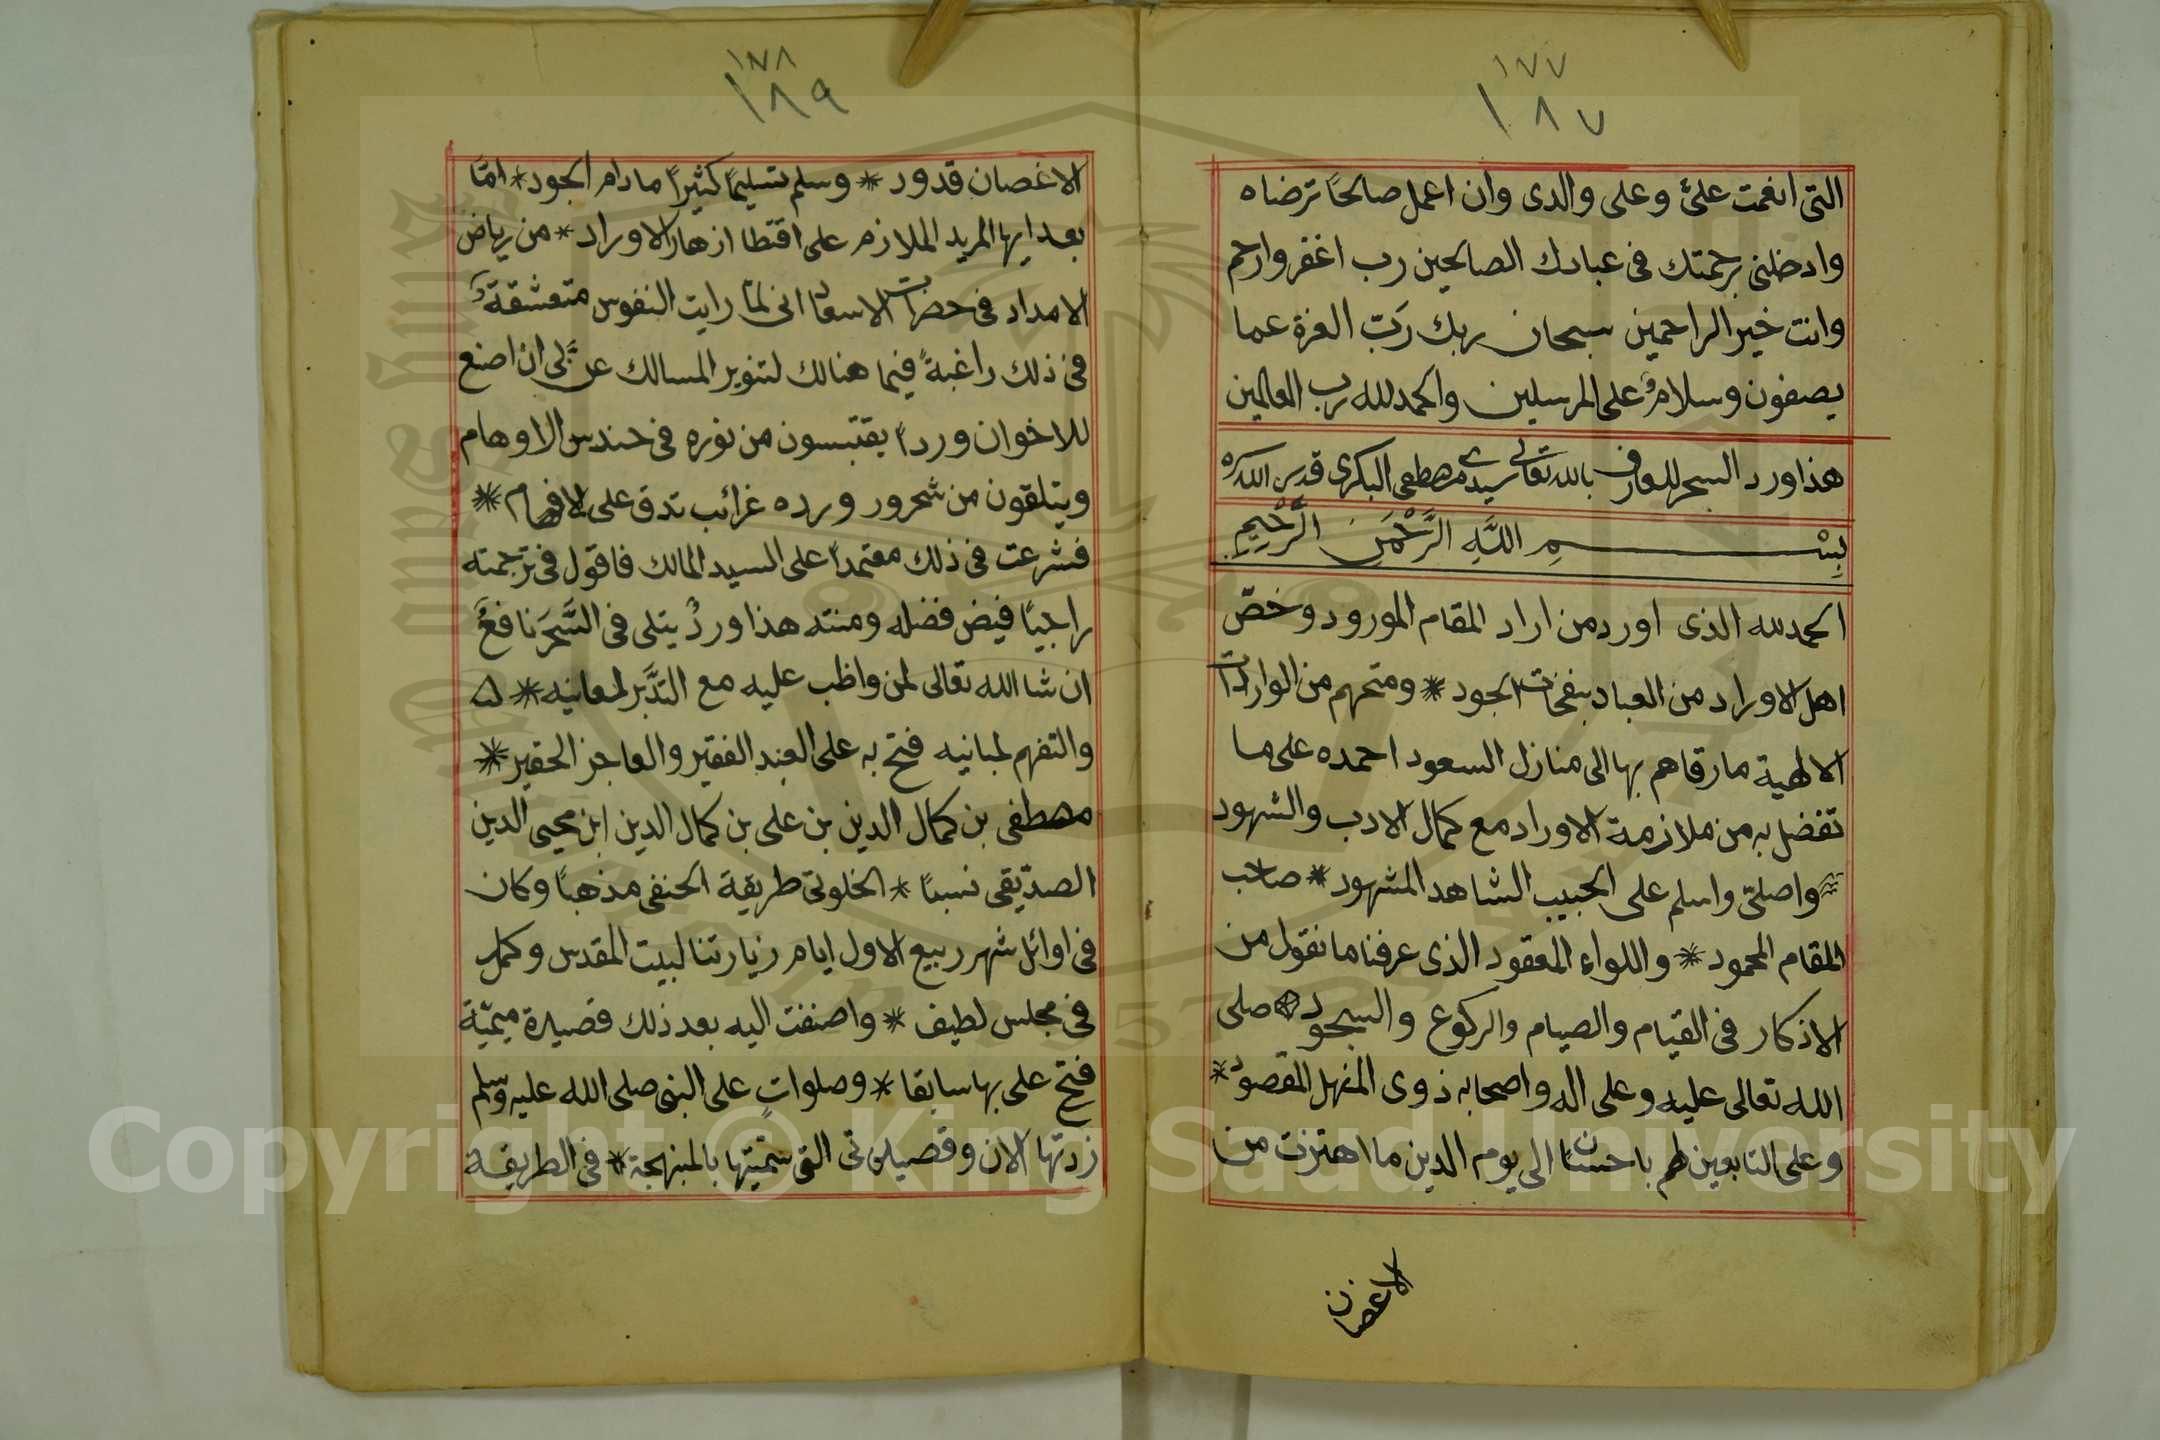 ١٧٧
١٨٧
التى انعمت علىّ وعلى والدى وان اعمل صالحًا ترضاه
وادخلنى برحمتك فى عبادك الصالحين رب اغفر وارحم
وانت خير الراحمين سبحان ربك رَبّ العزة عما
يصفون وسلامٌ على المرسلين والحمد لله رب العالمين
هذا ورد السحر للعارف بالله تعالى سيدى مصطفى البكرى قدس الله سره
بِسْمِ اللَّهِ الرَّحْمَنِ الرَّحِيْمِ
الحمد لله الذى اورد من اراد المقام المورود وخصّ
اهل الاوراد من العباد بنفحات الجود * ومنحهم من الواردات
الالهية ما رقاهم بها الى منازل السعود احمده على ما
تفضل به من ملازمة الاوراد مع كمال الادب والشهود
واصلىّ واسلم على الحبيب الشاهد المشهود * صاحب
المقام المحمود * واللواء المعقود الذى عرفنا ما نقول من
الاذكار فى القيام والصيام والركوع والسجود صلى
الله تعالى عليه وعلى اله واصحابه ذوى المنهل المقصود *
وعلى التابعين لهم باحسان الى يوم الدين ما اهتزت من
الاغصان
١٧٨
١٨٩
الاغصان قدود * وسلم تسليمًا كثيرًا ما دام الجود * امّا
بعد ايها المريد الملازم على اقتطا ازهار الاوراد * من رياض
الامداد فى حضرات الاسعاد انى لمّا رايت النفوس متعشقةً
فى ذلك راغبةً فيما هنالك لتنوير المسالك عنَّ لى ان اصنع
للاخوان وردًا يقتبسون من نوره فى حندس الاوهام
ويتلقون من شحرور ورده غرائب تدق على الافهام *
فشرعت فى ذلك معتمدًا على السيد المالك فاقول فى ترجمته
راجيًا فيض فضله ومنته هذا وردٌ يتلى فى السَّحَر نافعٌ
ان شا الله تعالى لمن واظب عليه مع التدَّبر لمعانيه *
والتفهم لمبانيه فتح به على العبد الفقير والعاجز الحقير *
مصطفى بن كمال الدين بن على بن كمال الدين ابن محيى الدين
الصدّيقى نسبًا * الخلوتى طريقة الحنفى مذهبًا وكان
فى اوائل شهر ربيع الاول ايام زيارتنا لبيت المقدس وكمل
فى مجلس لطيف * واضفت اليه بعد ذلك قصيدة ميميّة
فتح على بها سابقا * وصلواتٍ على النبى صلى الله عليه وسلم
زدتها الان وقصيدتى التى سميتها بالمنبهجة * فى الطريقة
Copyright © King Saud University